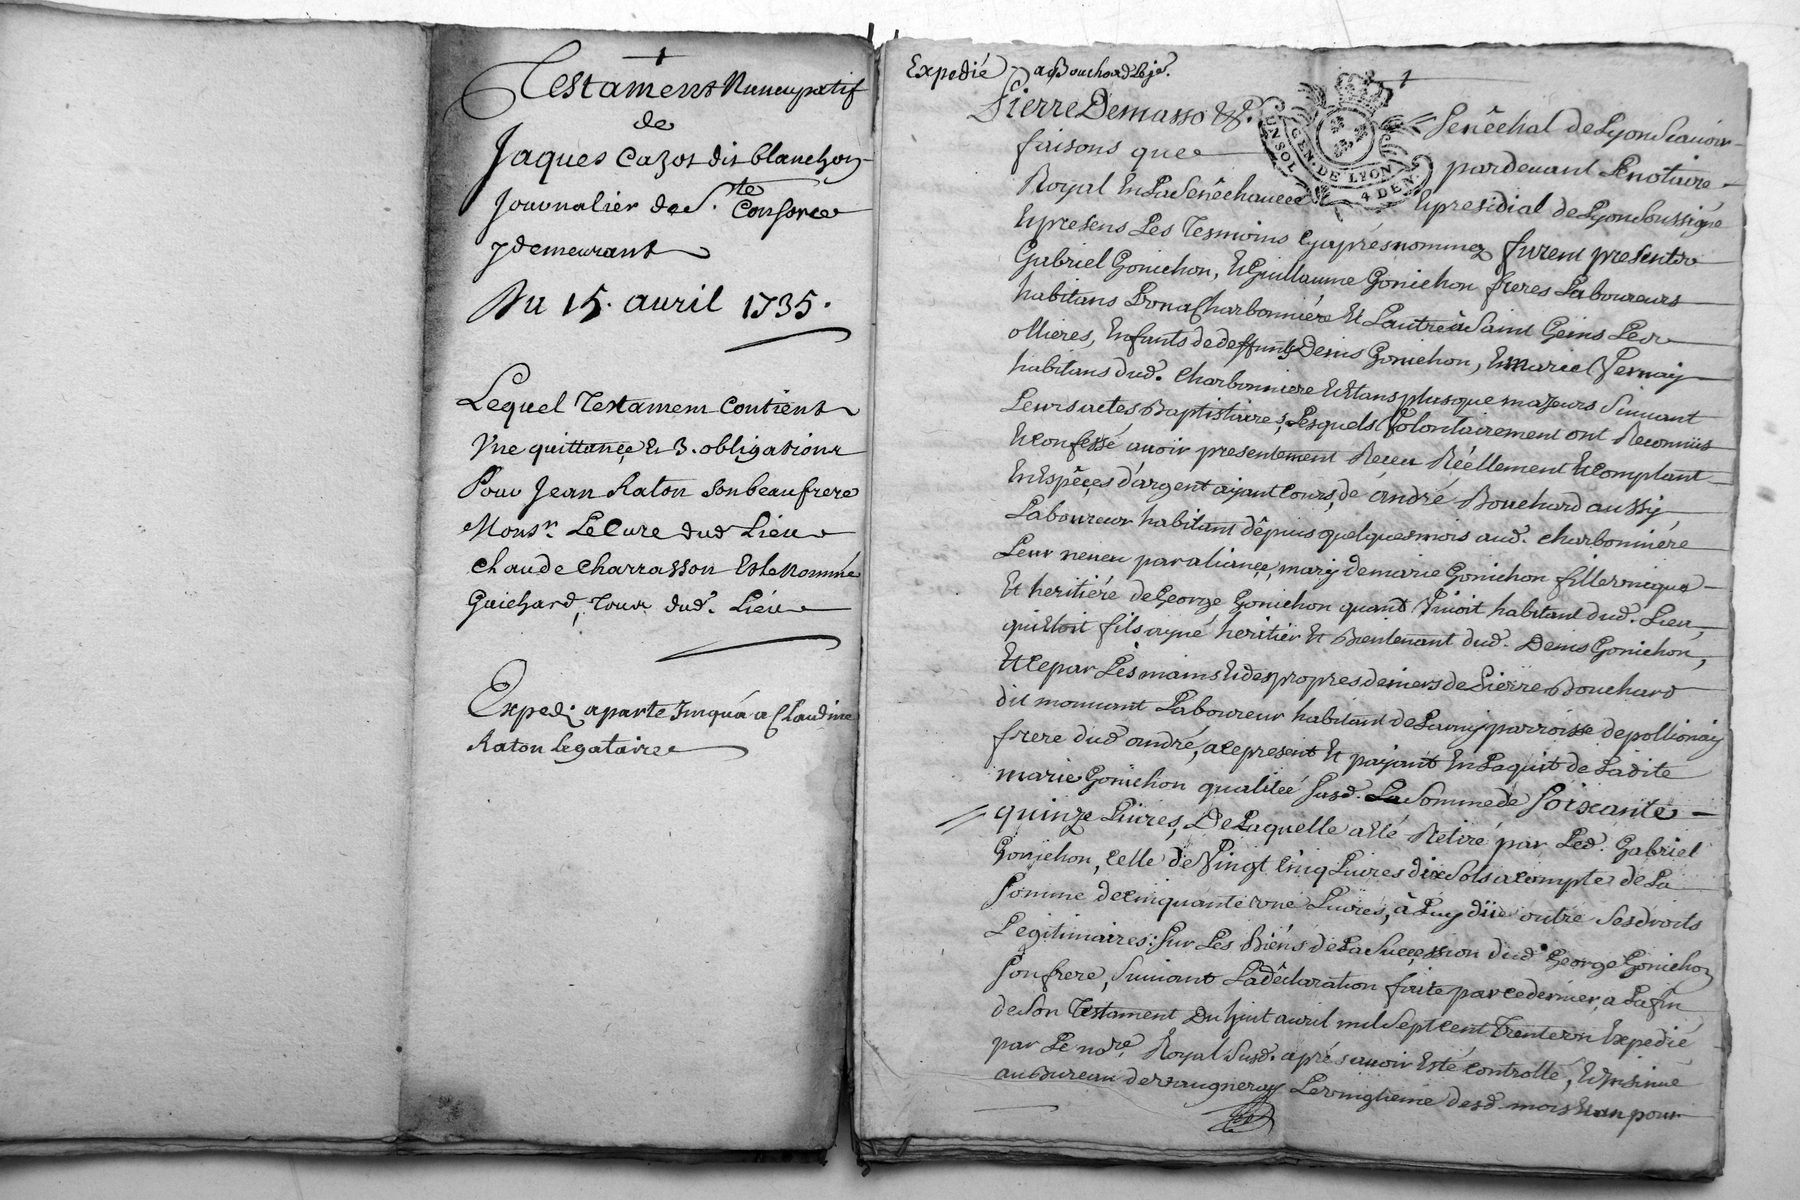 Testament Nuncupatif
de
Jaques Cazot dit blanchon
Journalier de S.te Consorce
y demeurant
Du 15. avril 1735.
Lequel Testament Contient
Une quittance et 3. obligations
Pour Jean Raton son beaufrere
Monsr. Le Cure dud Lieu
Claude Charrasson et le nommé
Guichard, tous dud. Lieu
Exped: a parte in qua a Claudine
Raton Legataire
Expedié a Bouchard Le je.
Pierre Demasso &.
Senêchal de Lyon Scavoir
faisons que
pardevant Le notaire
Royal En La Senêchaucée
GEN. DE LYON
UN SOL
4 DEN.
Et presidial de Lyon Soussigné
Et presens Les Tesmoins cy aprés nommez furent presents
Gabriel Gonichon, Et Guillaume Gonichon freres Laboureurs
habitans Lun a Charbonniére Et Lautre a Saint Genis Les
ollieres, Enfants de deffunts Denis Gonichon, Et marie Vernay
habitans dud. Charbonniere Estans plus que majeurs Suivant
Leurs actes Baptistaires; Lesquels Volontairement ont Reconnus
Et confessé avoir presentement Receu Réellement Et comptant
En Espéçes d'argent ayant cours, de andré Bouchard aussy
Laboureur habitant dêpuis quelques mois aud. Charbonniére
Leur neveu par aliançe, mary de marie Gonichon fille unique
Et heritiére de George Gonichon quand Vivoit habitant dud. Lieu,
qui Etoit fils ayné heritier Et Bientenant dud. Denis Gonichon,
Et ce par Les mains Et des propres deniers de Pierre Bouchard
dit mounant Laboureur habitant de Larny parroisse de pollionay
frere dud andré, a ce present Et payant En Laquit de Ladite
marie Gonichon qualitée Susd. La Somme de Soixante
quinze Livres, De Laquelle a Eté Retiré par Led. Gabriel
Gonichon, Celle de Vingt Cinq Livres dix Sols a compte de La
Somme de cinquante une Livres, à Luy düe outre Ses droits
Legitimaires; Sur Les Biéns de La Succession dud. George Gonichon
Son frere, Suivant La déclaration faite par ce dernier, a La fin
de Son Testament Du huit avril mil Sept cent Trente un Expedié
par Le nore. Royal Susd. aprés avoir Esté controllé, Et insinué
au Bureau de Vaugneray Le vingtieme desd. mois Et an pour